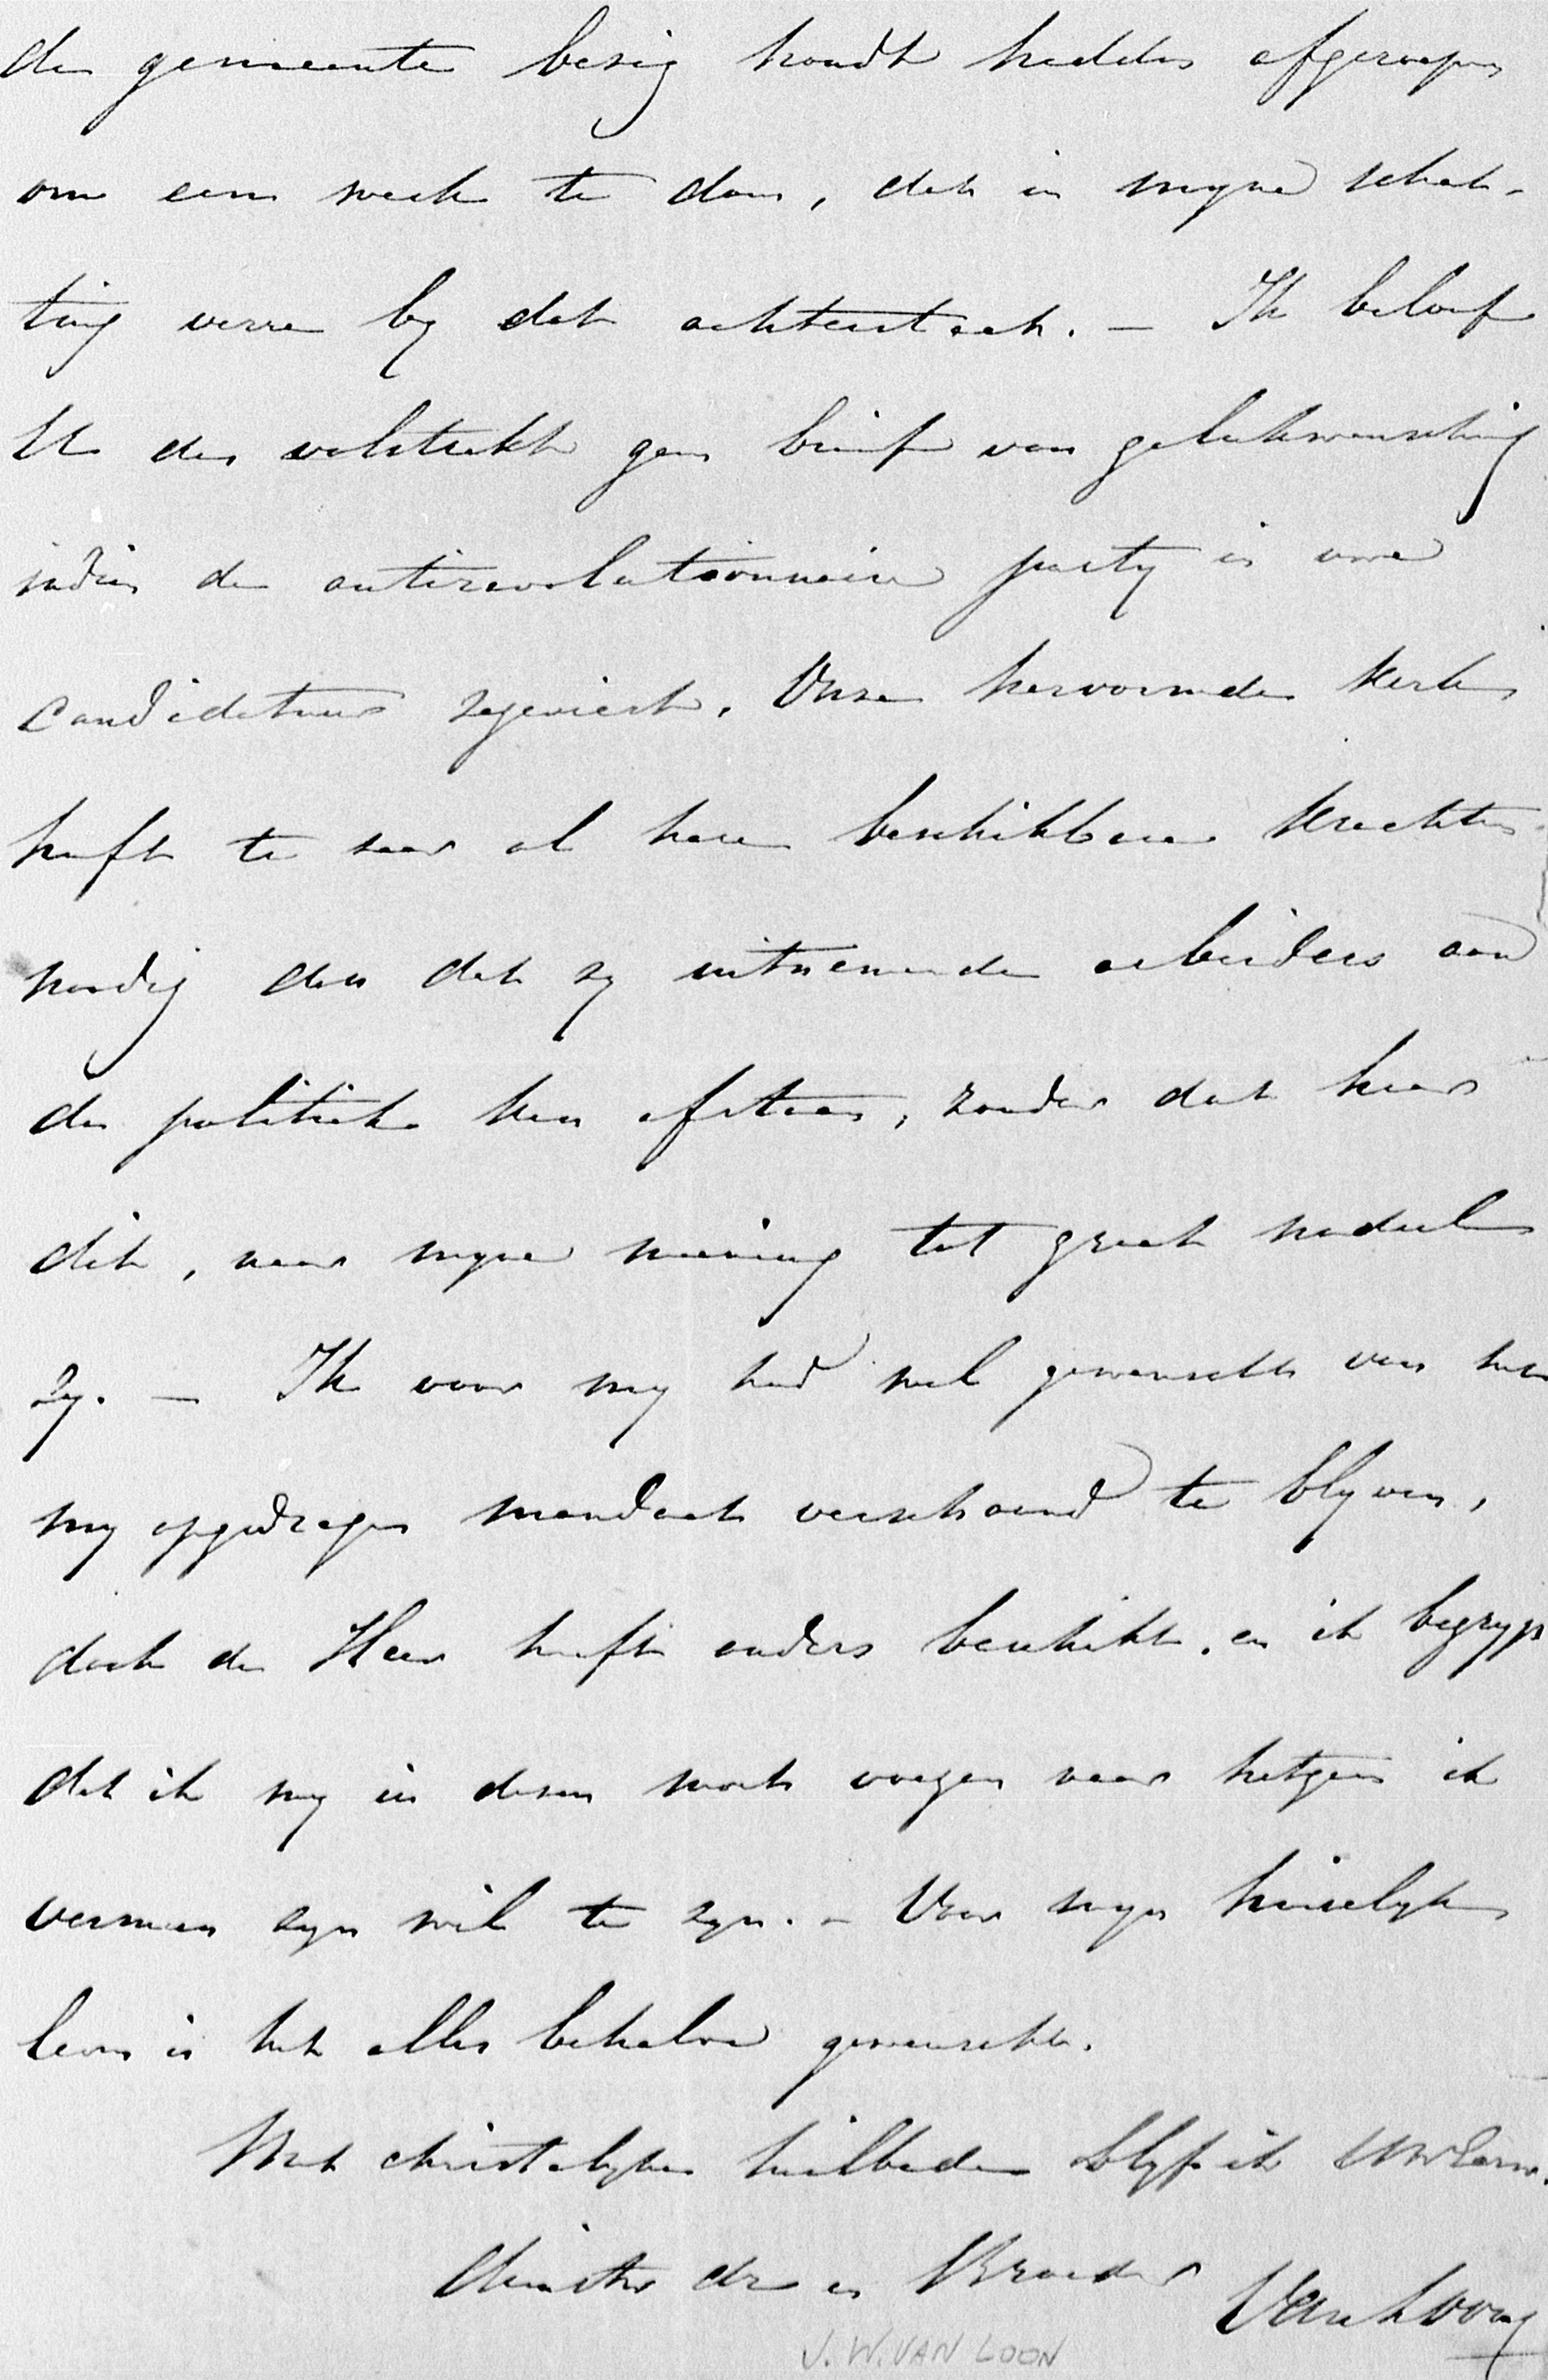 de gemeente bezig houdt hadden afgeroepen
om een werk te doen, dat in myne schat-
ting verre by dat achterstaat. – Ik beloof
U dus volstrekt geen brief van gelukwensching
indien de antirevolutionnaire party in uwe
candidatuur zegeviert. Onze hervormde Kerk
heeft te zeer al hare beschikbare krachten
noodig dan dat zy uitnemende arbeiders aan
de politiek kan afstaan, zonder dat haar
dit, naar myne meening tot groot nadeel
zy. – Ik voor my had wel gewenscht van het
my opgedragen mandaat verschoond te blyven,
doch de Heer heeft anders beschikt. en ik begryp
dat ik my in dezen moet voegen naar hetgeen ik
vermeen zyn wil te zyn. – Voor myn huiselyk
leven is het alles behalve gewenscht.
Met christelyke heilbede blyf ik UwEerw.
dienstw dr en Broeder Van Loon
J. W. VAN LOON